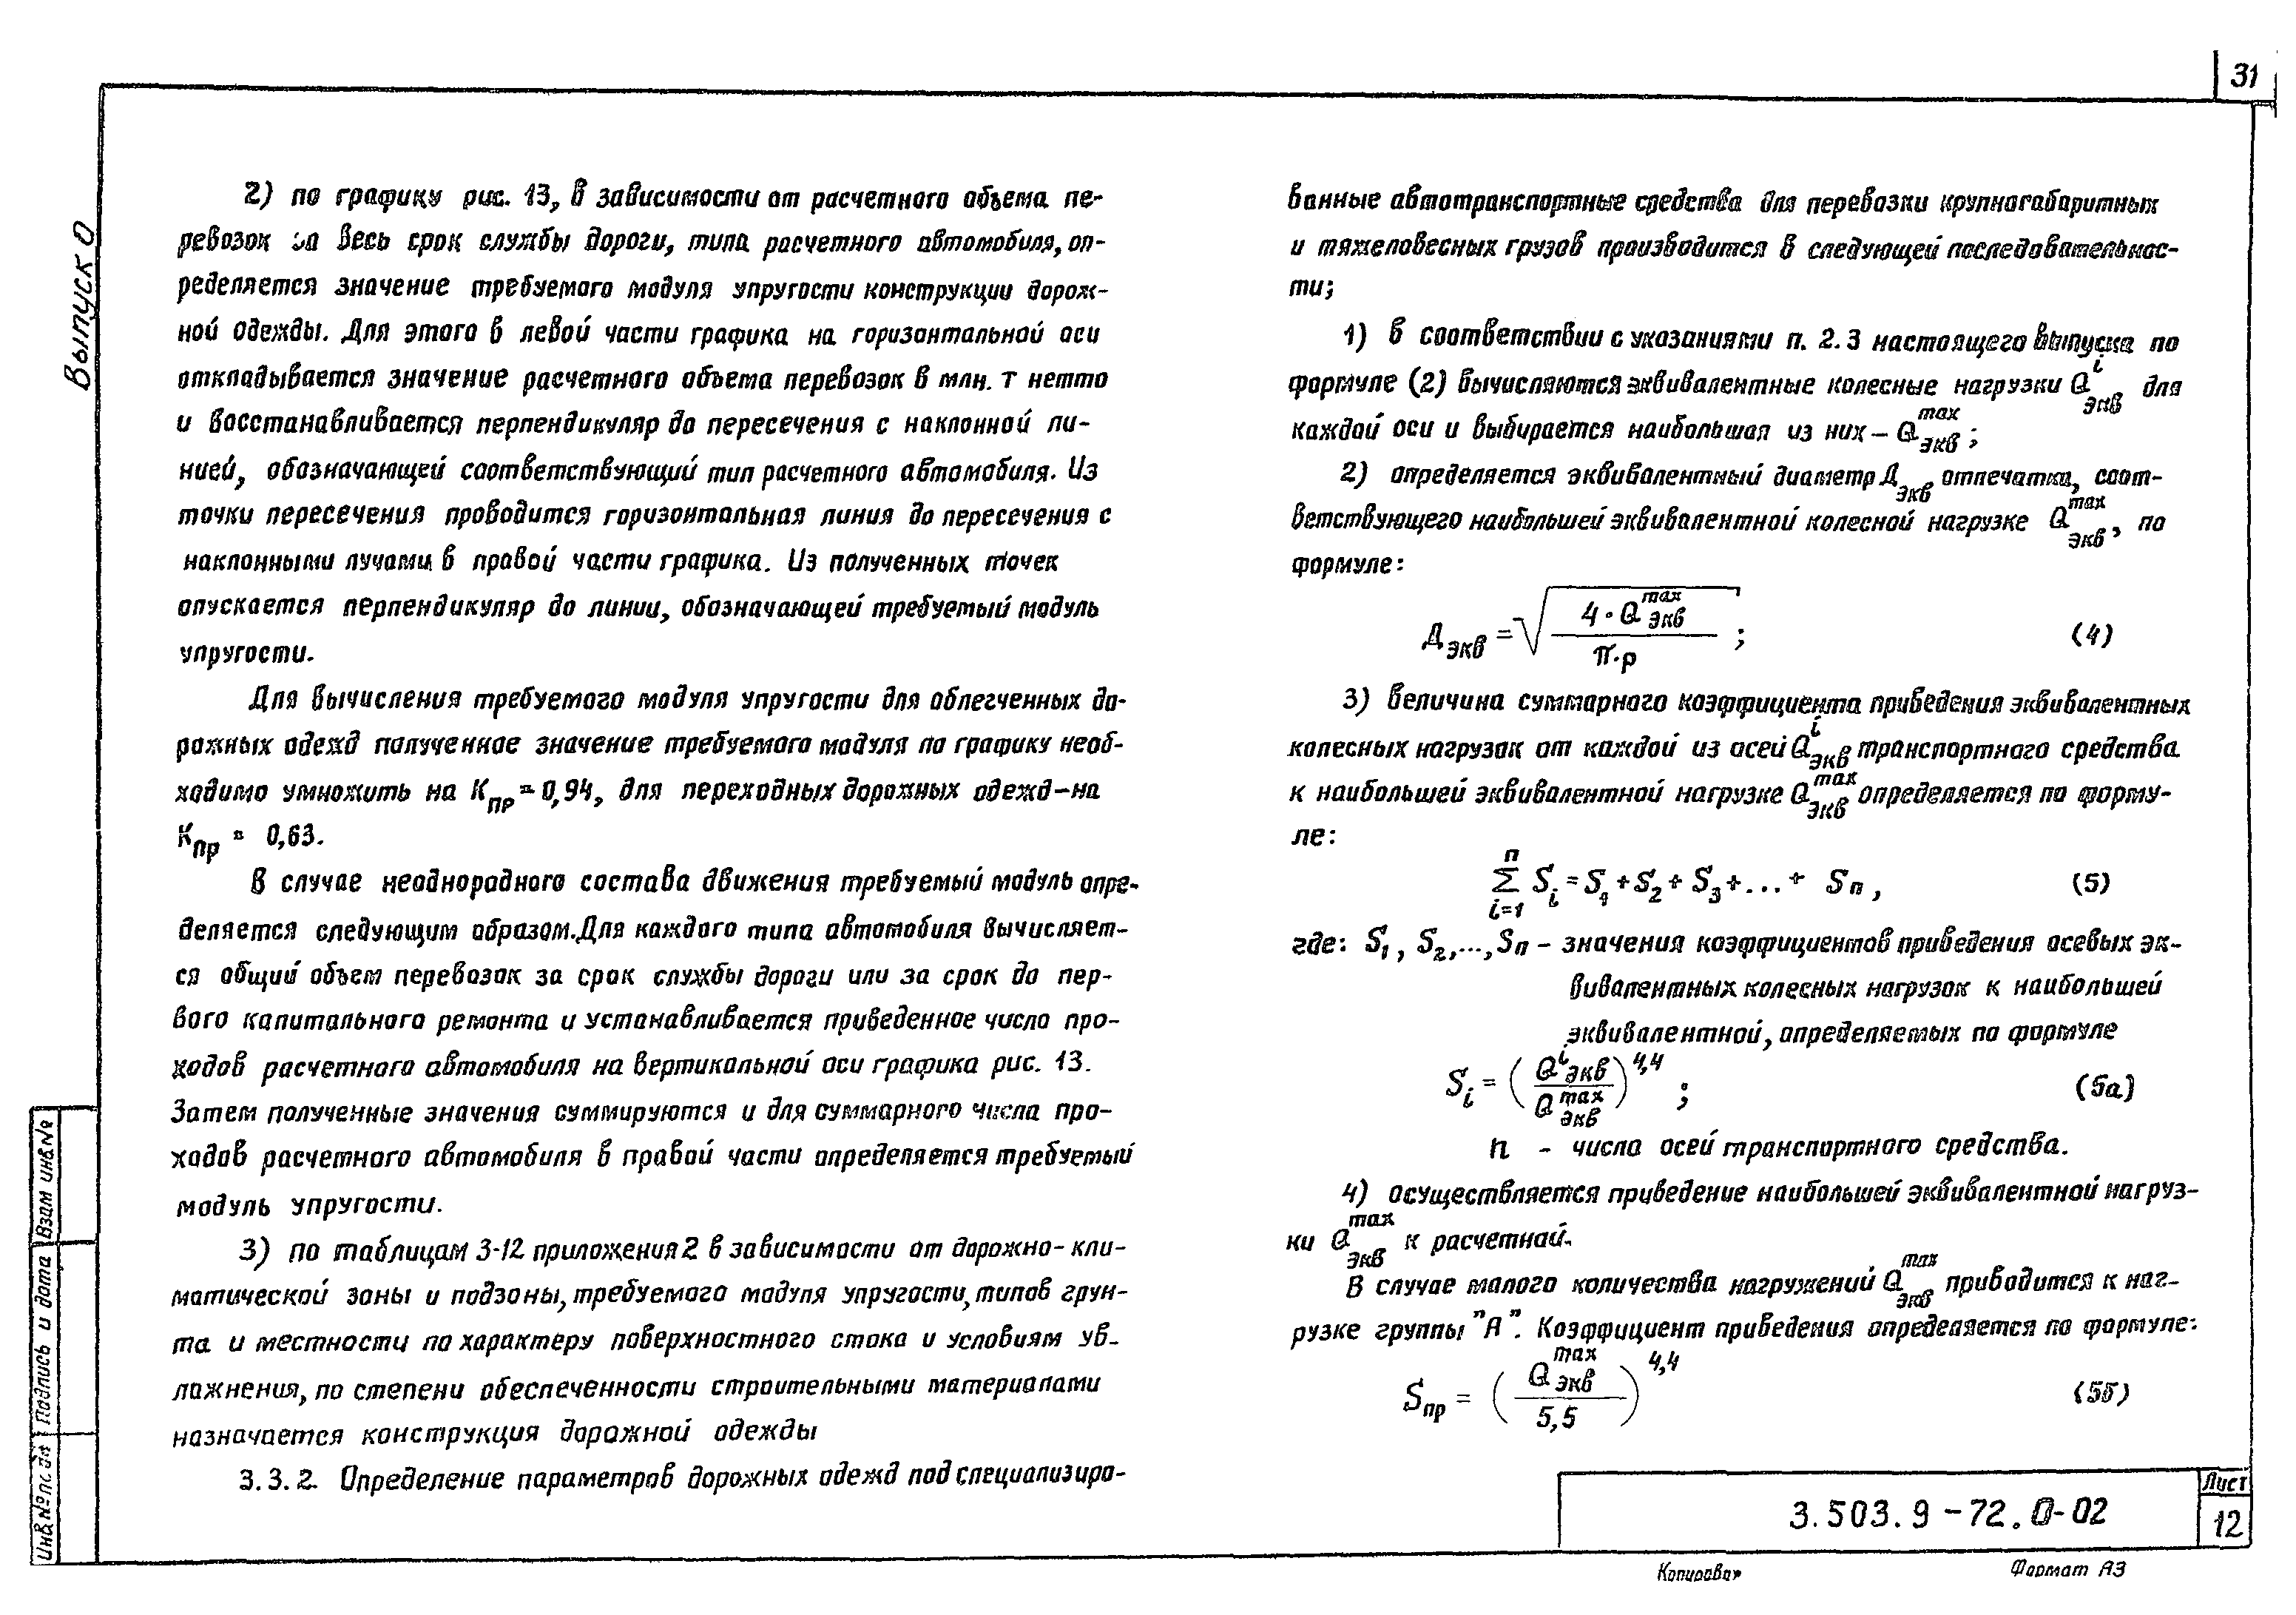 31
Выпуск 0
2) по графику рис. 13, в зависимости от расчетного объема пе-
ревозок за весь срок службы дороги, типа расчетного автомобиля, оп-
ределяется значение требуемого модуля упругости конструкции дорож-
ной одежды. Для этого в левой части графика на горизонтальной оси
откладывается значение расчетного объема перевозок в млн. т нетто
и восстанавливается перпендикуляр до пересечения с наклонной ли-
нией, обозначающей соответствующий тип расчетного автомобиля. Из
точки пересечения проводится горизонтальная линия до пересечения с
наклонными лучами в правой части графика. Из полученных точек
опускается перпендикуляр до линии, обозначающей требуемый модуль
упругости.
Для вычисления требуемого модуля упругости для облегченных до-
рожных одежд полученное значение требуемого модуля по графику необ-
ходимо умножить на Kпр = 0,94, для переходных дорожных одежд-на
Kпр = 0,63.
В случае неоднородного состава движения требуемый модуль опре-
деляется следующим образом. Для каждого типа автомобиля вычисляет-
ся общий объем перевозок за срок службы дороги или за срок до пер-
вого капитального ремонта и устанавливается приведенное число про-
ходов расчетного автомобиля на вертикальной оси графика рис. 13.
Затем полученные значения суммируются и для суммарного числа про-
ходов расчетного автомобиля в правой части определяется требуемый
модуль упругости.
3) по таблицам 3-12 приложения 2 в зависимости от дорожно-кли-
матической зоны и подзоны, требуемого модуля упругости, типов грун-
та и местности по характеру поверхностного стока и условиям ув-
лажнения, по степени обеспеченности строительными материалами
назначается конструкция дорожной одежды
3.3.2. Определение параметров дорожных одежд под специализиро-
ванные автотранспортные средства для перевозки крупногабаритных
и тяжеловесных грузов производится в следующей последовательнос-
ти;
1) в соответствии с указаниями п. 2.3 настоящего выпуска по
формуле (2) вычисляются эквивалентные колесные нагрузки Q^i экв для
каждой оси и выбирается наибольшая из них – Q^max экв ;
2) определяется эквивалентный диаметр Дэкв отпечатка, соот-
ветствующего наибольшей эквивалентной колесной нагрузке Q^max экв, по
формуле:
Дэкв = √(4 · Q^max экв / π·р) ; (4)
3) величина суммарного коэффициента приведения эквивалентных
колесных нагрузок от каждой из осей Q^i экв транспортного средства
к наибольшей эквивалентной нагрузке Q^max экв определяется по форму-
ле:
n Σ i=1 Si = S1 + S2 + S3 + ... + Sn , (5)
где: S1, S2,..., Sn – значения коэффициентов приведения осевых эк-
вивалентных колесных нагрузок к наибольшей
эквивалентной, определяемых по формуле
Si = (Q^i экв / Q^max экв)^4,4 ; (5а)
n - числа осей транспортного средства.
4) осуществляется приведение наибольшей эквивалентной нагруз-
ки Q^max экв к расчетной.
В случае малого количества нагружений Q^max экв приводится к наг-
рузке группы "А". Коэффициент приведения определяется по формуле:
Sпр = (Q^max экв / 5,5)^4,4 (5б)
Инв.№ подл Подпись и дата Взам инв.№
3.503.9-72.0-02
Лист
12
Копировал
Формат А3